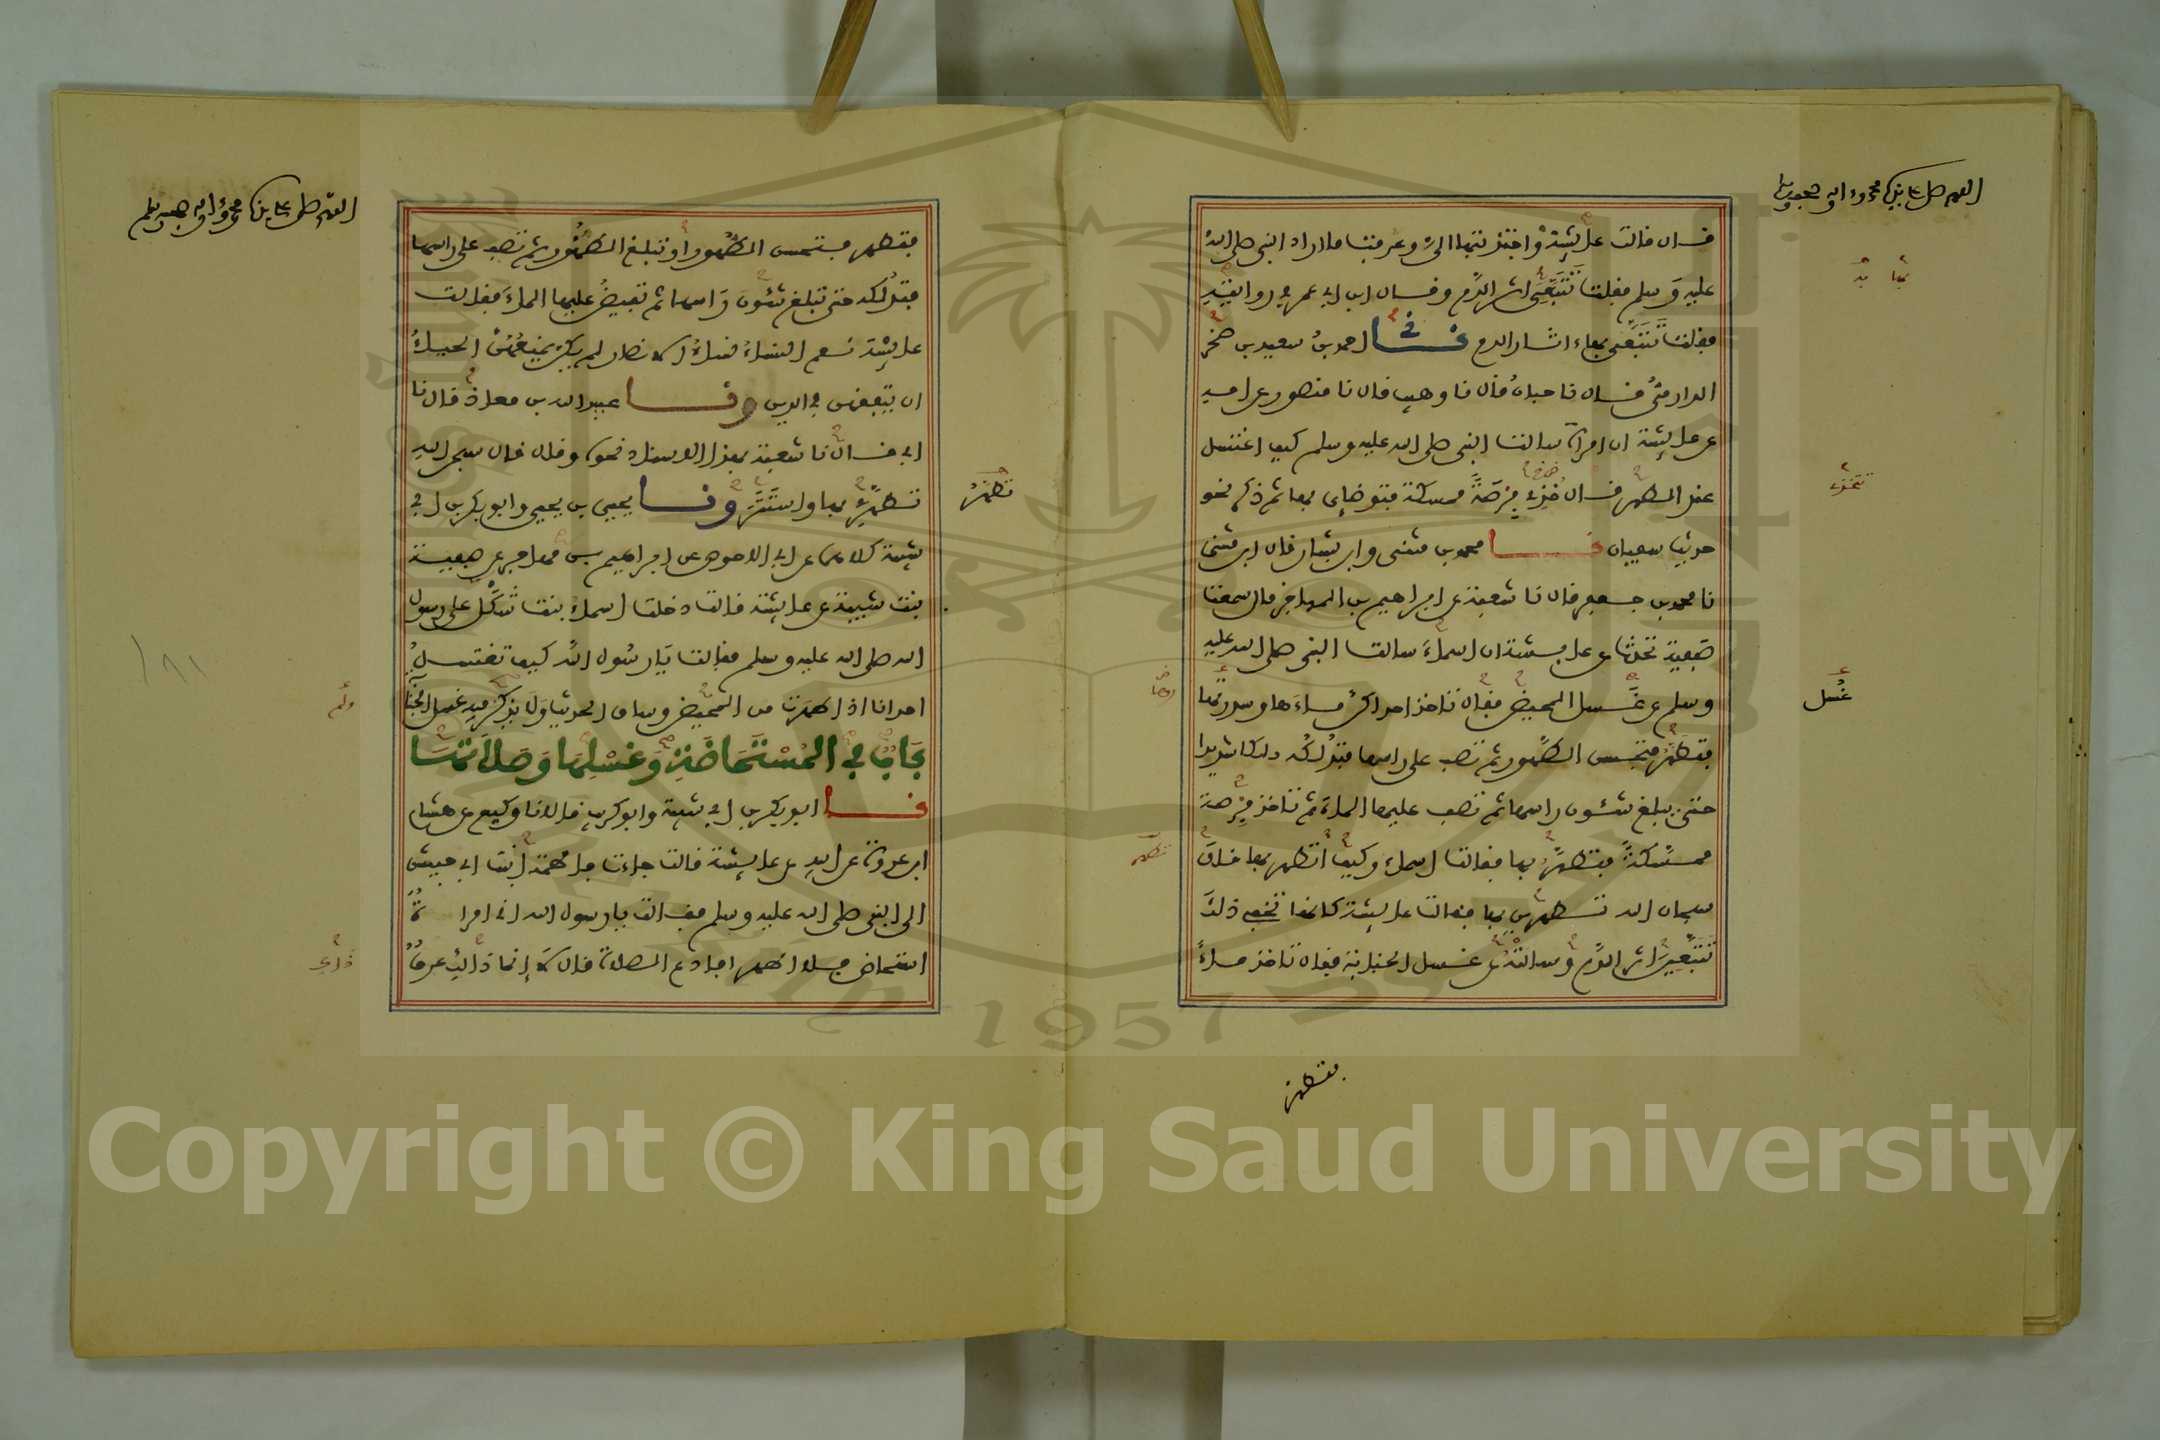 اللهم صل على نبينا محمد وءاله وصحبه وسلم
قال قالت عايشة واجتذبتها الي وعرفت ما اراد النبي صلى الله
عليه وسلم فقلت تتبعي اثر الدم وقال ابن ابي عمر في روايته
فقلت تتبعي بها ءاثار الدم ثنا احمد بن سعيد بن صخر
الدارمي قال نا حبان قال نا وهيب قال نا منصور عن امه
عن عايشة ان امراة سالت النبي صلى الله عليه وسلم كيف اغتسل
عند الطهر قال خذي فرصة ممسكة فتوضاي بها ثم ذكر نحو
حديث سفيان ثنا محمد بن مثنى وابن بشار قال ابن مثنى
نا محمد بن جعفر قال نا شعبة عن ابراهيم بن المهاجر قال سمعت
صفية تحدث عن عايشة ان اسماء سالت النبي صلى الله عليه
وسلم عن غسل المحيض فقال تاخذ احداكن ماءها وسدرتها
فتطهر فتحسن الطهور ثم تصب على راسها فتدلكه دلكا شديدا
حتى يبلغ شئون راسها ثم تصب عليها الماء ثم تاخذ فرصة
ممسكة فتطهر بها فقالت اسماء وكيف اتطهر بها فقال
سبحان الله تطهرين بها فقالت عايشة كانها تخفي ذلك
تتبعين اثر الدم وسالته عن غسل الجنابة فقال تاخذ ماء
فتطهر
بها
تخذي
غسل
تطهر
اللهم صل على نبينا محمد وءاله وصحبه وسلم
فتطهر فتحسن الطهور او تبلغ الطهور ثم تصب على راسها
فتدلكه حتى تبلغ شئون راسها ثم تفيض عليها الماء فقالت
عايشة نعم النساء نساء الانصار لم يكن يمنعهن الحياء
ان يتفقهن في الدين وثنا عبيد الله بن معاذ قال نا
ابي قال نا شعبة بهذا الاسناد نحوه وقال قال سبحن الله
تطهري بها واستتر وثنا يحيى بن يحيى وابو بكر بن ابي
شيبة كلاهما عن ابي الاحوص عن ابراهيم بن مهاجر عن صفية
بنت شيبة عن عايشة قالت دخلت اسماء بنت شكل على رسول
الله صلى الله عليه وسلم فقالت يا رسول الله كيف تغتسل
احدانا اذا طهرت من المحيض وساق الحديث ولم يذكر فيه غسل الجنابة
باب في المستحاضة وغسلها وصلاتها
ثنا ابو بكر بن ابي شيبة وابو كريب قالا نا وكيع عن هشام
ابن عروة عن ابيه عن عايشة قالت جاءت فاطمة ابنت ابي حبيش
الى النبي صلى الله عليه وسلم فقالت يا رسول الله اني امراة
استحاض فلا اطهر افادع الصلاة قال لا إنما ذلك عرق
تطهري
ولم
١٨١
Copyright © King Saud University
1957